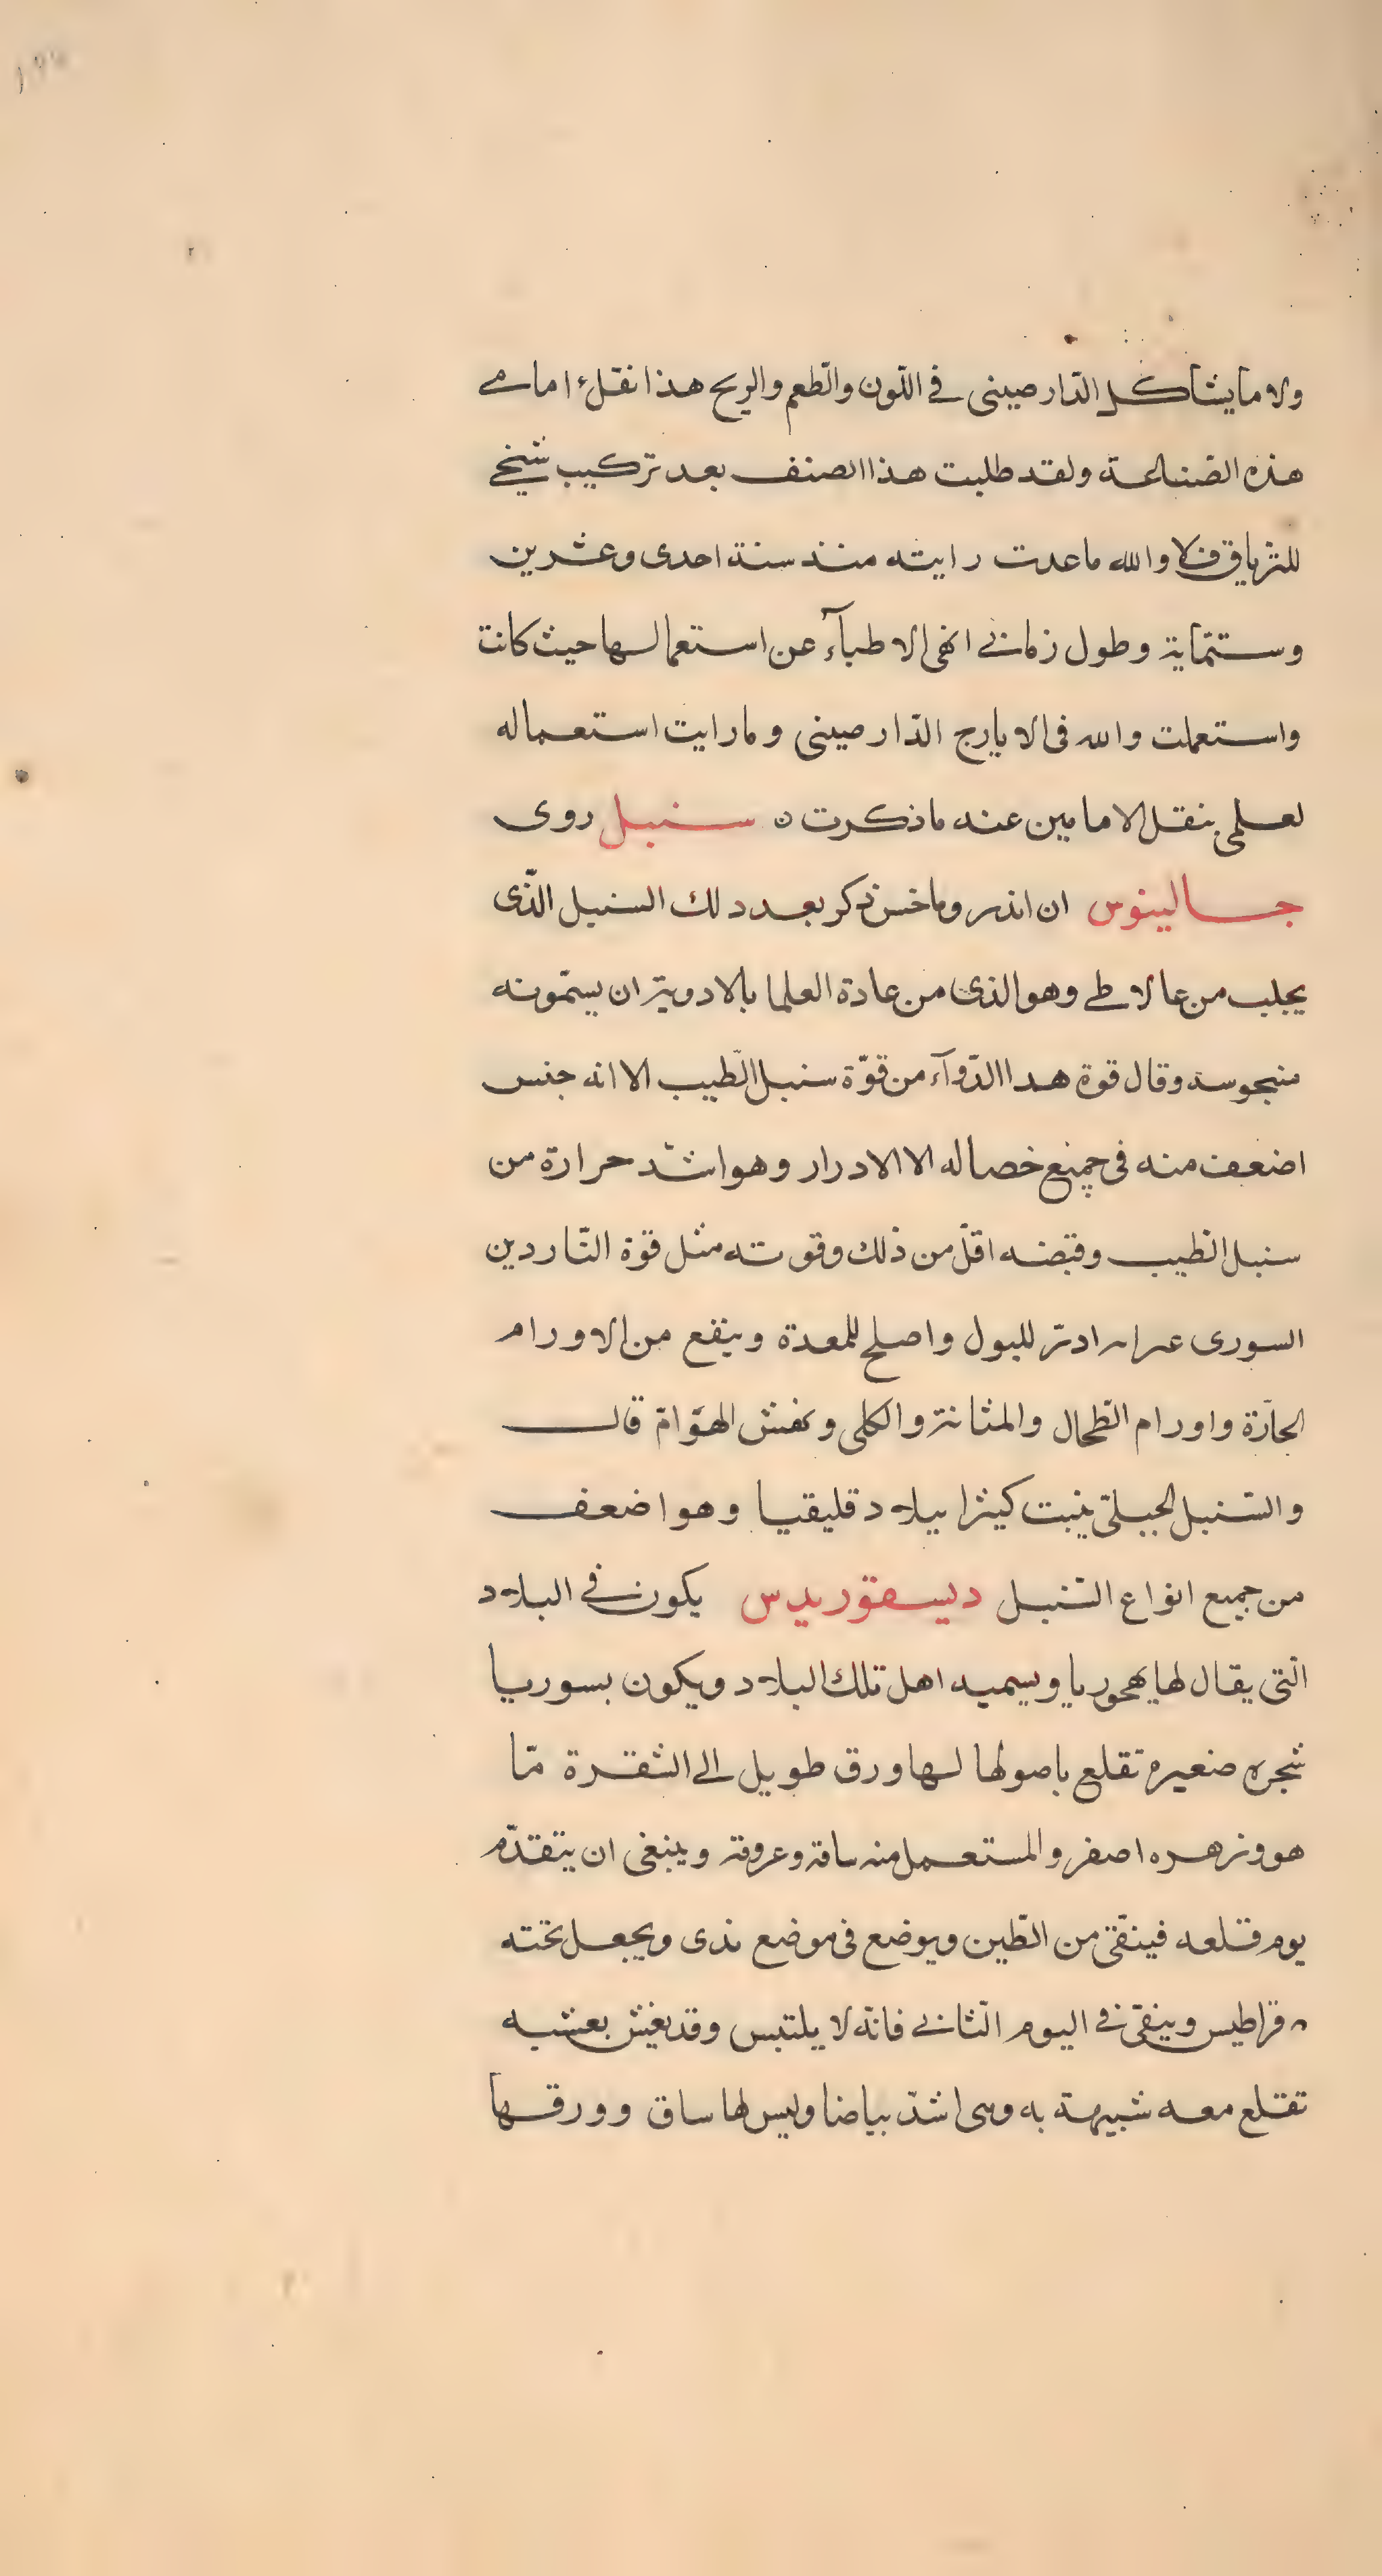 ولا ما يشاكل الدّارصينى في اللّون والطّعم والريح هذا نقل امامے
هذه الصّناعة ولقد طلبت هذا الصنف بعد تركيب شيخے
للترياق فلا والله ما عدت رايته منذ سنة احدى وعشرين
وستمّاية وطول زمانے انهى الاطبآء عن استعمالها حيث كانت
واستعملت والله فى الايارج الدّارصينى وما رايت استعماله
لعلمى بنقل الامامين عنه ما ذكرت ه سنبل روى
جالينوس ان اندروماخس ذكر بعد دلك السنبل الّذى
يجلب من عالاطے وهو الذى من عادة العلما بالادوية ان يسمّونه
منجوسه وقال قوة هدا الدّوآء من قوّة سنبل الطّيب الا انه جنس
اضعف منه فى جميع خصاله الا الادرار وهو اشدّ حرارة من
سنبل الطيب وقبضه اقلّ من ذلك وقوته مثل قوّة النّاردين
السورى عىر انه ادرّ للبول واصلح للمعدة وينفع من الاورام
الحارّة واورام الطّحال والمثانة والكلى ونهش الهوّامّ قال
والسّنبل الجبلىّ ينبت كثيرا ببلاد قليقيا وهو اضعف
من جميع انواع السّنبل ديسقوريدس يكون فے البلاد
الّتى يقال لها يهحوريا ويسميه اهل تلك البلاد ويكون بسوريا
شجره صغيره تقلع باصولها لها ورق طويل الے الشقرة مّا
هو وزهره اصفر والمستعمل منه ساقه وعروقه وينبغى ان يتقدّم
يوم قلعه فينقّى من الطّين ويوضع فى موضع ندى ويجعل تحته
قراطيس وينقّى فے اليوم الثّانے فانّه لا يلتبس وقد يغش بعشبه
تقلع معه شبيهة به وهى اشدّ بياضا وليس لها ساق وورقها